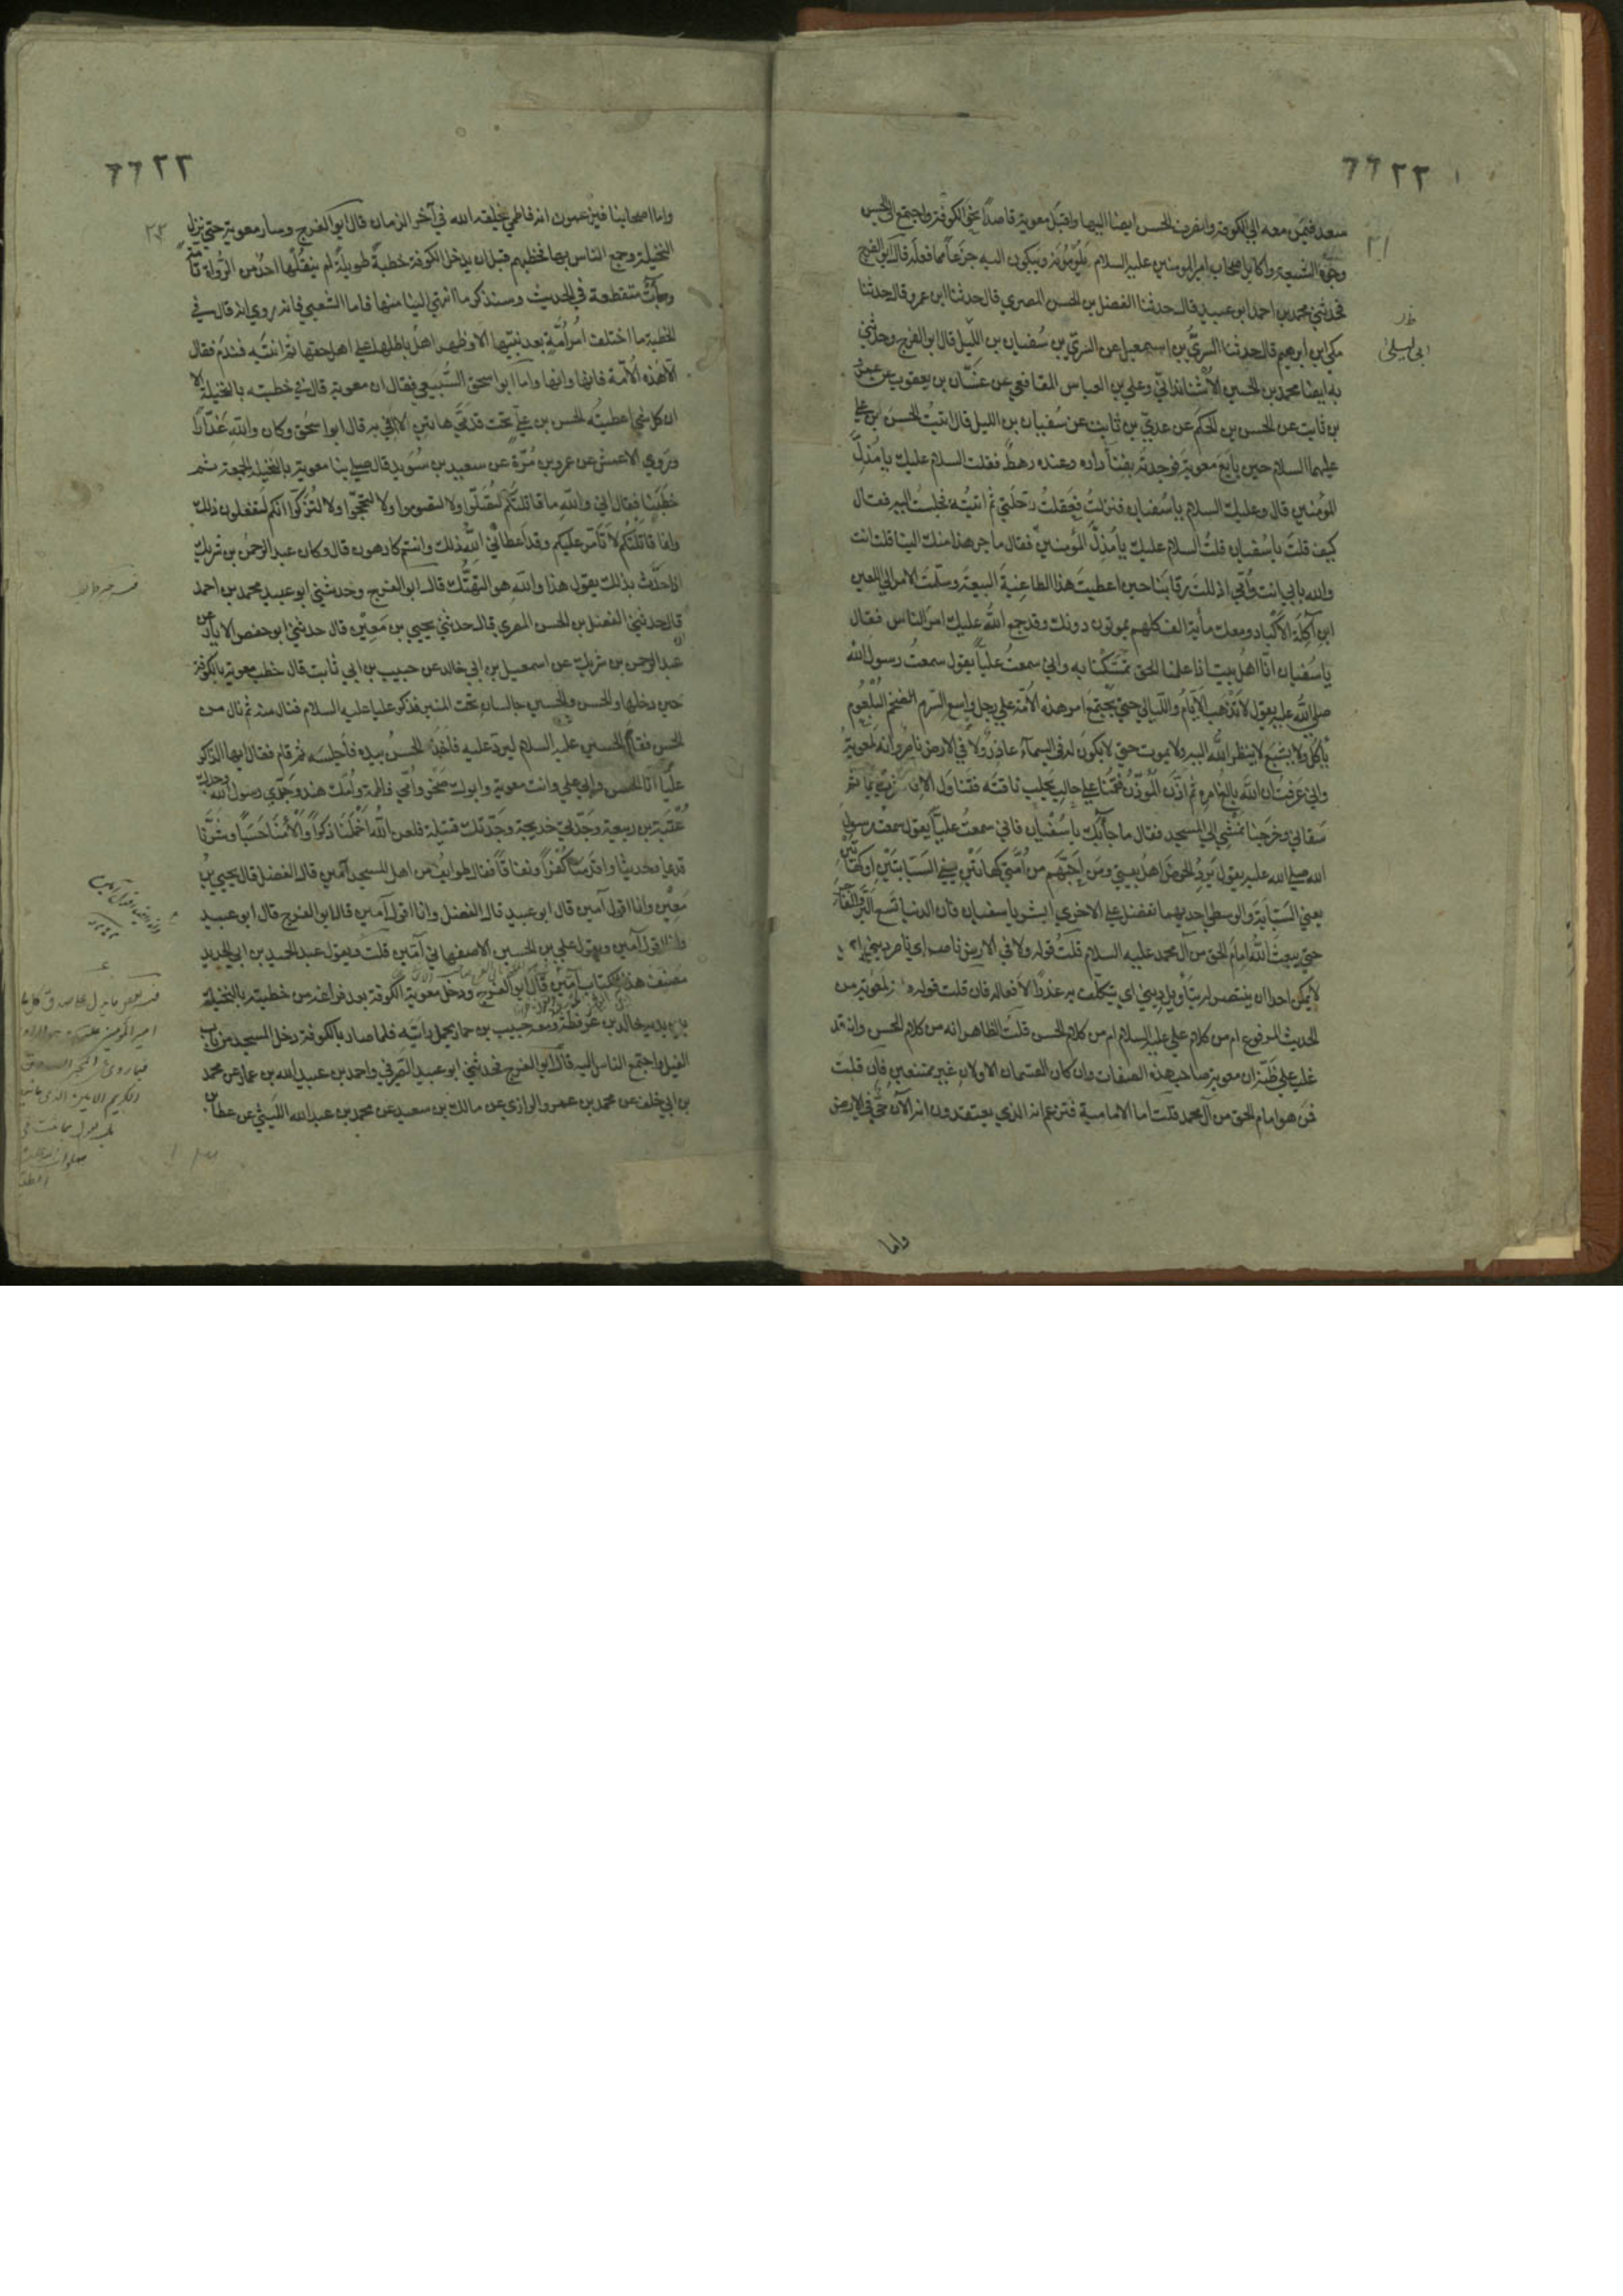 ٦٦٢٢
سعد فيمن معه الي الكوفة وانصرف الحسن ايضا اليها واقبل معوية قاصدا نحو الكوفة واجتمع الي الحسن
وجوه الشيعة واكابر اصحاب امير المومنين عليه السلام يلومونه ويبكون اليه جزعا مما فعله قال ابو الفرج
فحدثني محمد بن احمد ابو عبيد قال حدثنا الفضل بن الحسن المصري قال حدثنا ابن عمرو قال حدثنا
مكي ابن ابرهيم قال حدثنا السري بن اسمعيل عن السري بن سفيان بن الليل قال ابو الفرج وحدثني
به ايضا محمد بن الحسين الاشنانداني وعلي بن العباس المقانعي عن عباد بن يعقوب عن عمرو
بن ثابت عن الحسن بن الحكم عن عدي بن ثابت عن سفيان بن الليل قال اتيت الحسن بن علي
عليهما السلام حين بايع معوية فوجدته بفناء داره وعنده رهط فقلت السلام عليك يا مذل
المؤمنين قال وعليك السلام يا سفيان فنزلت فعقلت رحلتي ثم اتيته فجلست اليه فقال
كيف قلت يا سفيان قلت السلام عليك يا مذل المؤمنين فقال ما جر هذا منك الينا قلت انت
والله بابي انت وامي اذللت رقابنا حين اعطيت هذا الطاغية البيعة وسلمت الامر الي اللعين
ابن آكلة الاكباد ومعك مأية الف كلهم يموتون دونك وقد جمع الله عليك امر الناس فقال
يا سفيان انا اهل بيت اذا علمنا الحق تمسكنا به واني سمعت عليا يقول سمعت رسول الله
صلي الله عليه يقول لا تذهب الايام والليالي حتي يجتمع امر هذه الامة علي رجل واسع السرم الضخم البلعوم
يأكل ولا يشبع لا ينظر الله اليه ولا يموت حتي لا يكون له في السماء عاذر ولا في الارض ناصر وانه لمعوية
واني عرفت ان الله بالغ امره ثم اذن الموذن فقمنا علي حالب يحلب ناقته فتناول الاناء فشرب قايما ثم
سقاني وخرجنا نمشي الي المسجد فقال ما جآء بك يا سفيان فاني سمعت عليا يقول سمعت رسول
الله صلي الله عليه يقول يرد الحوض اهل بيتي ومن احبهم من امتي كهاتين يعني السبابتين او كهاتين
يعني السبابة والوسطي احديهما تفضل علي الاخري ابشر يا سفيان فان الدنيا تسع البر والفاجر
حتي يبعث الله امام الحق من آل محمد عليه السلام قلت قوله ولا في الارض ناصر اي ناصر ديني اي
لا يمكن احدا ان ينتصر له بتاويل ديني اي يتكلف به عذرا لافعاله فان قلت قوله وانه لمعوية من
الحديث المرفوع ام من كلام علي عليه السلام ام من كلام الحسن قلت الظاهر انه من كلام الحسن وانه قد
غلب علي ظنه ان معوية صاحب هذه الصفات وان كان القسمان الاولان غير ممتنعين فان قلت
فمن هو امام الحق من آل محمد قلت اما الامامية فتزعم انه الذي يعتقدون انه الآن حي في الارض
واما
٦٦٢٢
واما اصحابنا فيزعمون انه فاطمي يخلقه الله في آخر الزمان قال ابو الفرج وسار معوية حتي نزل
النخيلة وجمع الناس بها فخطبهم قبل ان يدخل الكوفة خطبة طويلة لم ينقلها احد من الرواة تامة
وجآت متقطعة في الحديث وسنذكر ما انتهي الينا منها فاما الشعبي فانه روي انه قال في
الخطبة ما اختلف امر امة بعد نبيها الا وظهر اهل باطلها علي اهل حقها ثم انتبه فندم فقال
الا هذه الامة فانها وانها واما ابو اسحق السبيعي فقال ان معوية قال في خطبته بالنخيلة الا
ان كل شي اعطيته الحسن بن علي تحت قدمي هاتين لا افي به قال ابو اسحق وكان والله غدارا
وروي الاعمش عن عمرو بن مرة عن سعيد بن سويد قال صلي بنا معوية بالنخيلة الجمعة ثم
خطبنا فقال اني والله ما قاتلتكم لتصلوا ولا لتصوموا ولا لتحجوا ولا لتزكوا انكم لتفعلون ذلك
وانما قاتلتكم لاتأمر عليكم وقد اعطاني الله ذلك وانتم كارهون قال وكان عبد الرحمن بن شريك
اذا حدث بذلك يقول هذا والله هو التهتك قال ابو الفرج وحدثني ابو عبيد محمد بن احمد
قال حدثني الفضل بن الحسن المصري قال حدثني يحيي بن معين قال حدثني ابو حفص الابار عن
عبد الرحمن بن شريك عن اسمعيل بن ابي خالد عن حبيب بن ابي ثابت قال خطب معوية بالكوفة
حين دخلها والحسن والحسين جالسان تحت المنبر فذكر عليا عليه السلام فنال منه ثم نال من
الحسن فقام الحسين عليه السلام ليرد عليه فاخذه الحسن بيده فاجلسه ثم قام فقال ايها الذاكر
عليا انا الحسن وابي علي وانت معوية وابوك صخر وامي فاطمة وامك هند وجدي رسول الله وجدك
عتبة بن ربيعة وجدتي خديجة وجدتك قتيلة فلعن الله اخملنا ذكرا والأمنا حسبا وشرنا
قديما وحديثا واقدمنا كفرا ونفاقا فقال طوايف من اهل المسجد آمين قال الفضل قال يحيي بن
معين وانا اقول آمين قال ابو عبيد قال الفضل وانا اقول آمين قال ابو الفرج قال ابو عبيد
وانا اقول آمين ويقول علي بن الحسين الاصفهاني آمين قلت ويقول عبد الحميد بن ابي الحديد
مصنف هذا الكتاب آمين قال ابو الفرج ودخل معوية الكوفة بعد فراغه من خطبته بالنخيلة
بين يديه خالد بن عرفطة ومعه حبيب بن حمار يحمل رايته فلما صار بالكوفة دخل المسجد من باب
الفيل واجتمع الناس اليه قال ابو الفرج فحدثني ابو عبيد الصيرفي واحمد بن عبيد الله بن عمار عن محمد
بن ابي خلف عن محمد بن عمرو الرازي عن مالك بن سعيد عن محمد بن عبد الله الليثي عن عطا بن